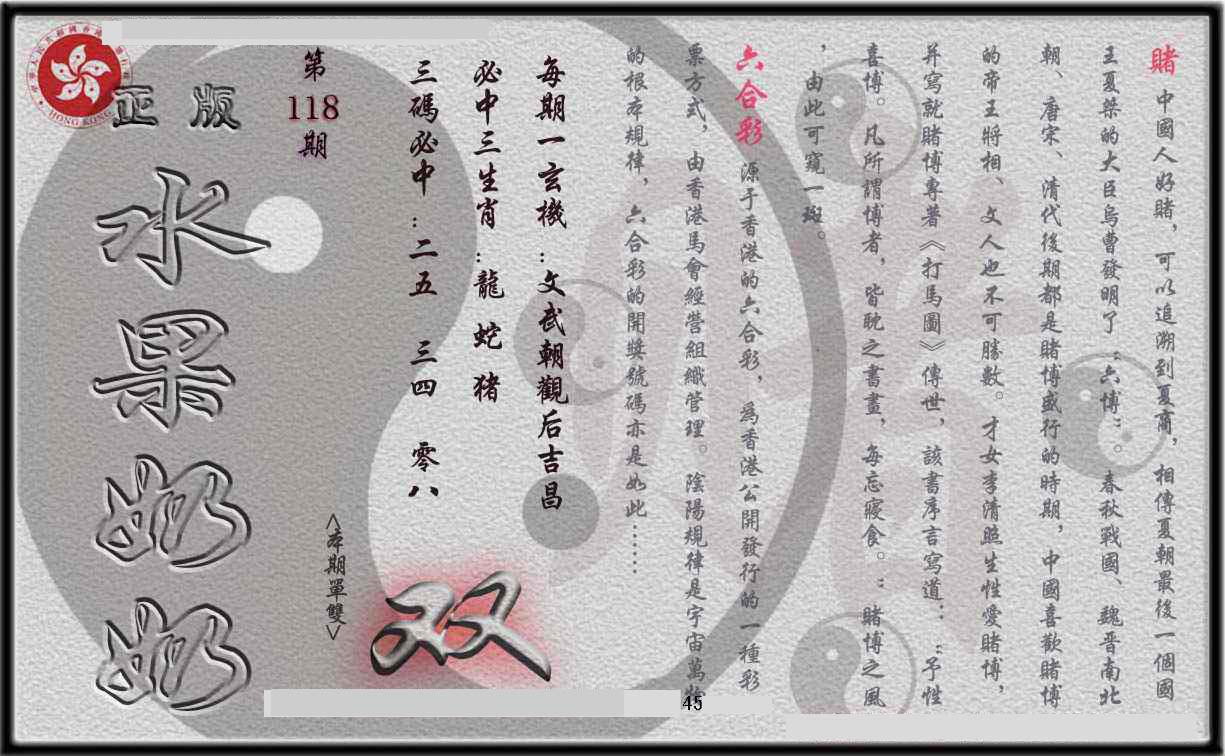 賭 中國人好賭，可以追溯到夏商，相傳夏朝最後一個國
王夏桀的大臣烏曹發明了“六博”。春秋戰國、魏晋南北
朝、唐宋、清代後期都是賭博盛行的時期，中國喜歡賭博
的帝王將相、文人也不可勝數。才女李清照生性愛賭博，
并寫就賭博專著《打馬圖》傳世，該書序言寫道：“予性
喜博。凡所謂博者，皆耽之書畫，每忘寢食。”賭博之風
，由此可窺一斑。
六合彩 源于香港的六合彩，為香港公開發行的一種彩
票方式，由香港馬會經營組織管理。陰陽規律是宇宙萬物
的根本規律，六合彩的開獎號碼亦是如此……
每期一玄機：文武朝觀后吉昌
必中三生肖：龍 蛇 猪
三碼必中：二五 三四 零八
第118期
<本期單雙>
双
正版
水果奶奶
HONG KONG
45